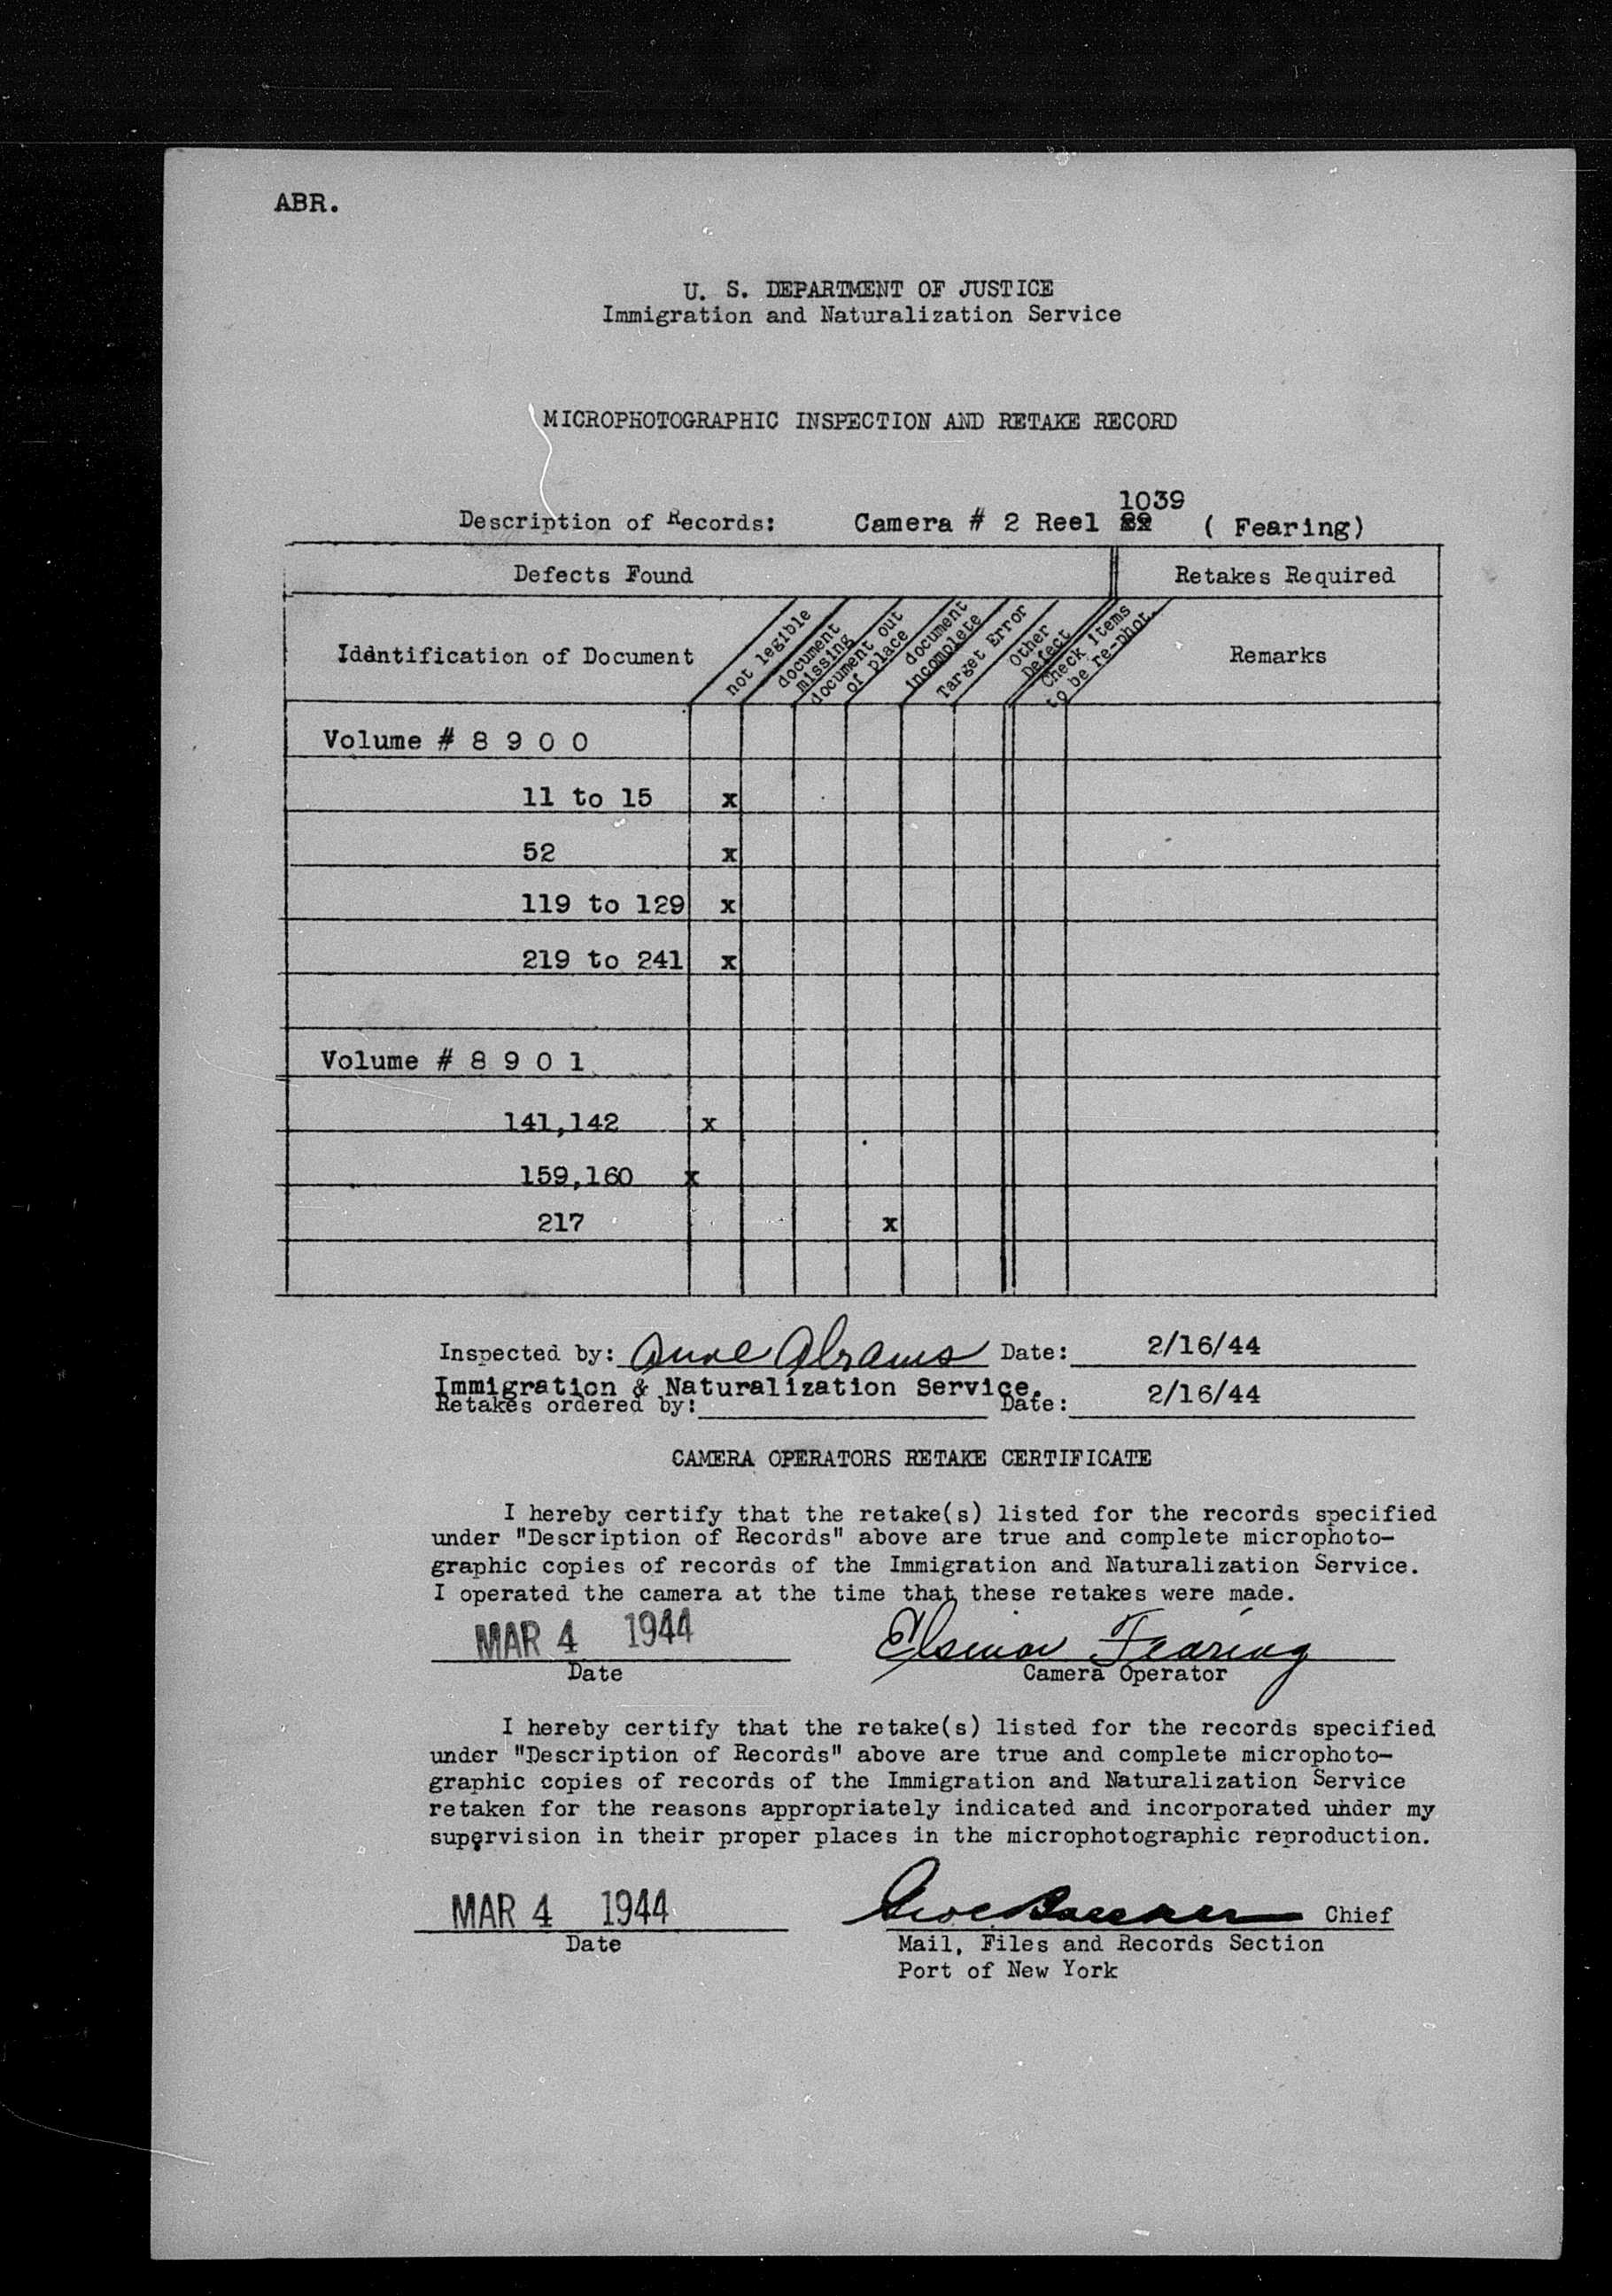 ABR.
U. S. DEPARTMENT OF JUSTICE
Immigration and Naturalization Service
MICROPHOTOGRAPHIC INSPECTION AND RETAKE RECORD
1039
Description of Records: Camera # 2 Reel ( Fearing)
Defects Found Retakes Required
Identification of Document
not legible
document missing
document out of place
document incomplete
Target Error
Other Defect
Check items to be re-phot.
Remarks
Volume # 8 9 0 0
11 to 15 x
52 x
119 to 129 x
219 to 241 x
Volume # 8 9 0 1
141,142 x
159,160 x
217 x
Inspected by: Anne Abrams Date: 2/16/44
Immigration & Naturalization Service.
Retakes ordered by: Date: 2/16/44
CAMERA OPERATORS RETAKE CERTIFICATE
I hereby certify that the retake(s) listed for the records specified
under "Description of Records" above are true and complete microphoto-
graphic copies of records of the Immigration and Naturalization Service.
I operated the camera at the time that these retakes were made.
MAR 4 1944 Fearing
Date Camera Operator
I hereby certify that the retake(s) listed for the records specified
under "Description of Records" above are true and complete microphoto-
graphic copies of records of the Immigration and Naturalization Service
retaken for the reasons appropriately indicated and incorporated under my
supervision in their proper places in the microphotographic reproduction.
MAR 4 1944 Chief
Date Mail, Files and Records Section
Port of New York